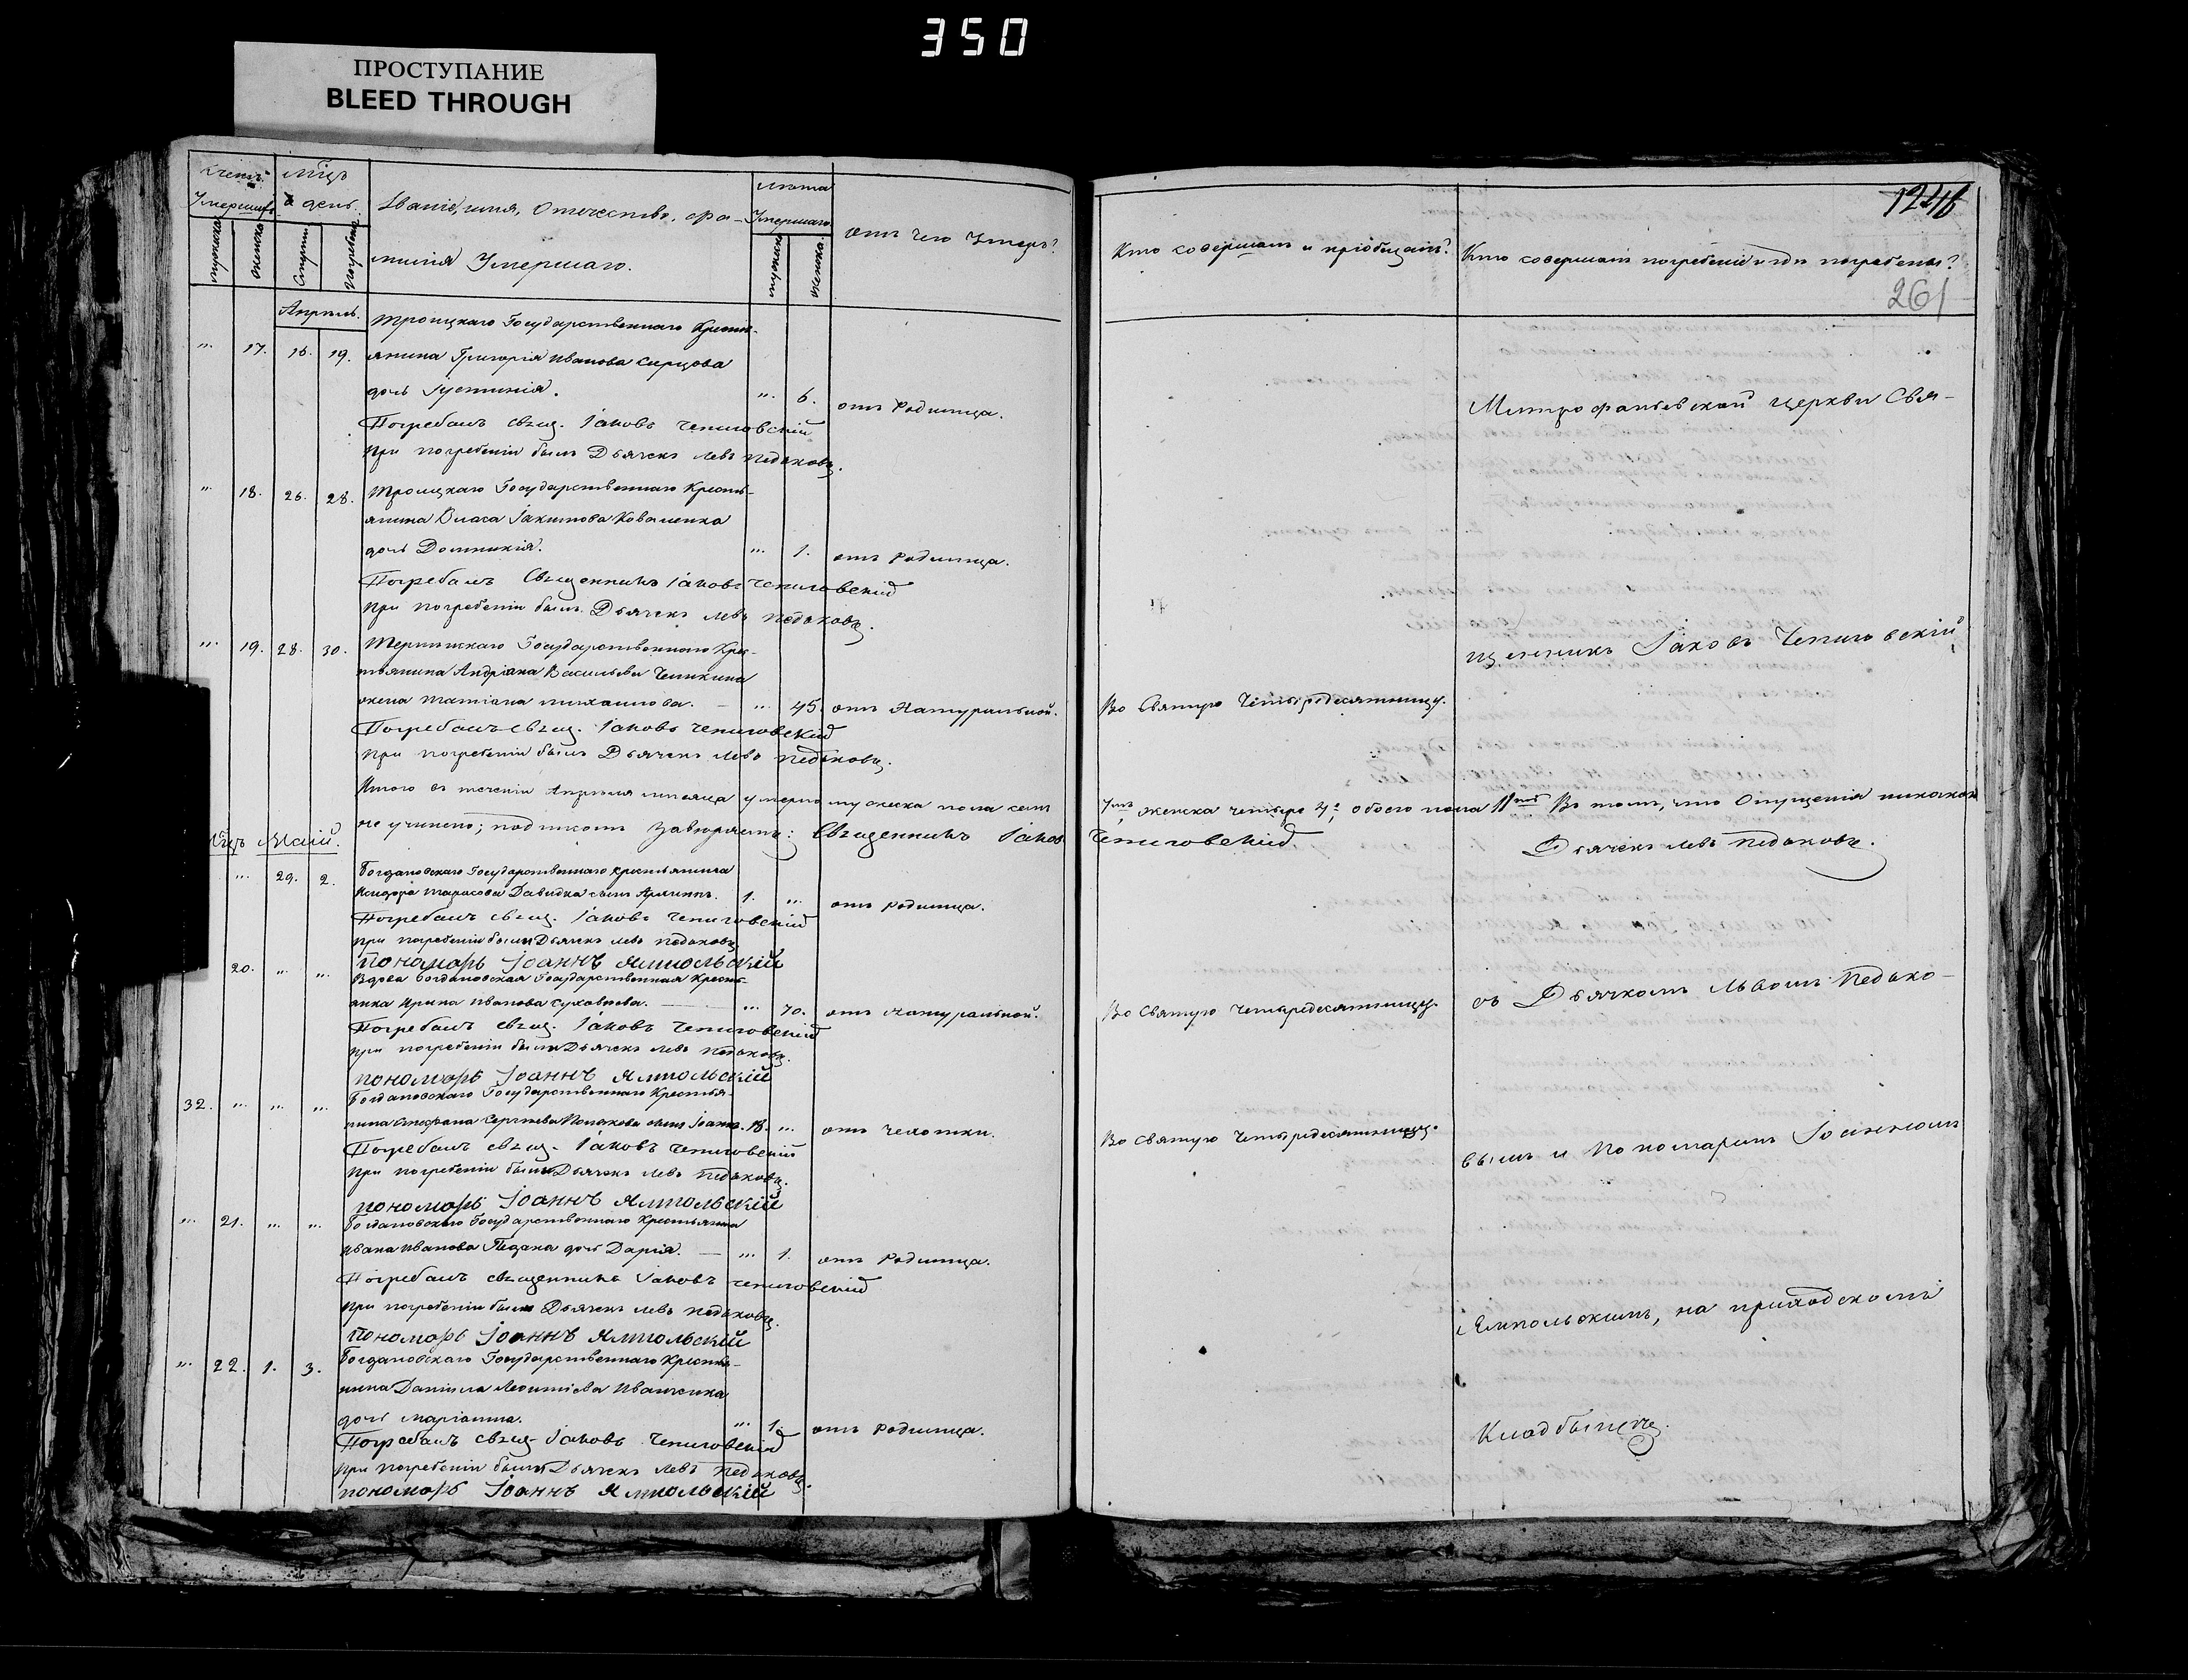 350
ПРОСТУПАНИЕ
BLEED THROUGH
Счетъ Умершихъ
мужска
женска
Мцъ и день
Смерти
Погребен.
Званіе, имя, Отечество, фа-
милія Умершаго.
Лѣта Умершаго
мужска
женска.
отъ чего Умеръ?
Апрѣль.
" 17. 16. 19. Троицкаго Государственнаго Крестья-
янина Григорія Иванова
дочь Іустинія. " 6. отъ Родимца.
Погребалъ свящ. Іаковъ Чепиговскій
При погребеніи былъ Дьячекъ Левъ Педьковъ.
" 18. 26. 28. Троицкаго Государственнаго Кресть-
янина Власа Іакимова Коваленка
дочь Домникія. " 1. отъ Родимца.
Погребалъ Священникъ Іаковъ Чепиговскій
При погребеніи былъ Дьячекъ Левъ Педьковъ.
" 19. 28. 30. Государственнаго Крес-
тьянина Андріана Васильева
жена Татіана Михаилова. — " 45. отъ Натуральной.
Погребалъ свящ. Іаковъ Чепиговскій
При погребеніи былъ Дьячекъ Левъ Педьковъ.
Итого въ теченіи Апрѣля мѣсяца умерло мужеска пола семь
не учинено; подписомъ завѣряемъ: Священникъ Іаковъ
Мцъ Маій.
" 29. 2. Богдановскаго Государственнаго Крестьянина
Исидора Тарасова Давидка сынъ 1. " отъ Родимца.
Погребалъ свящ. Іаковъ Чепиговскій
При погребеніи были Дьячекъ Левъ Педьковъ
Пономарь Іоаннъ Ямпольскій
20. " " Вдова Богдановская Государственная Кресть-
янка Ирина Иванова — " 70. отъ Натуральной.
Погребалъ свящ. Іаковъ Чепиговскій
При погребеніи были Дьячекъ Левъ Педьковъ.
пономарь Іоаннъ Ямпольскій
32. " " " Богдановскаго Государственнаго Крестья-
нина Стефана Сергѣева сынъ Іоаннъ. 18. " отъ Чахотки.
Погребалъ свящ. Іаковъ Чепиговскій
При погребеніи были Дьячекъ Левъ Педьковъ.
пономарь Іоаннъ Ямпольскій
" 21. " " Богдановскаго Государственнаго Крестьянина
Ивана Иванова дочь Дарія. — " 1. отъ Родимца.
Погребалъ священникъ Іаковъ Чепиговскій
При погребеніи были Дьячекъ Левъ Педьковъ.
Пономарь Іоаннъ Ямпольскій
" 22. 1. 3. Богдановскаго Государственнаго Крестья-
нина Даніила Леонтіева Иванченка
дочь Маріанна. " 1. отъ Родимца.
Погребалъ свящ. Іаковъ Чепиговскій
При погребеніи были Дьячекъ Левъ Педьковъ.
пономарь Іоаннъ Ямпольскій
261
Кто совершалъ и пріобщалъ?
Кто совершалъ погребеніе и гдѣ погребены?
Митрофаніевской Церкви Свя-
щенникъ Іаковъ Чепиговскій
Во Святую Четыредесятницу.
женска четыре 4, обоего пола 11 Въ томъ, что Опущенія никакого
Чепиговскій.
Дьячекъ Левъ Педьковъ.
Во Святую Четыредесятницу.
съ Дьячкомъ Львомъ Педько-
Во Святую Четыредесятницу.
вымъ и Пономаремъ Іоанномъ
Ямпольскимъ, на приходскомъ
Кладбищѣ.